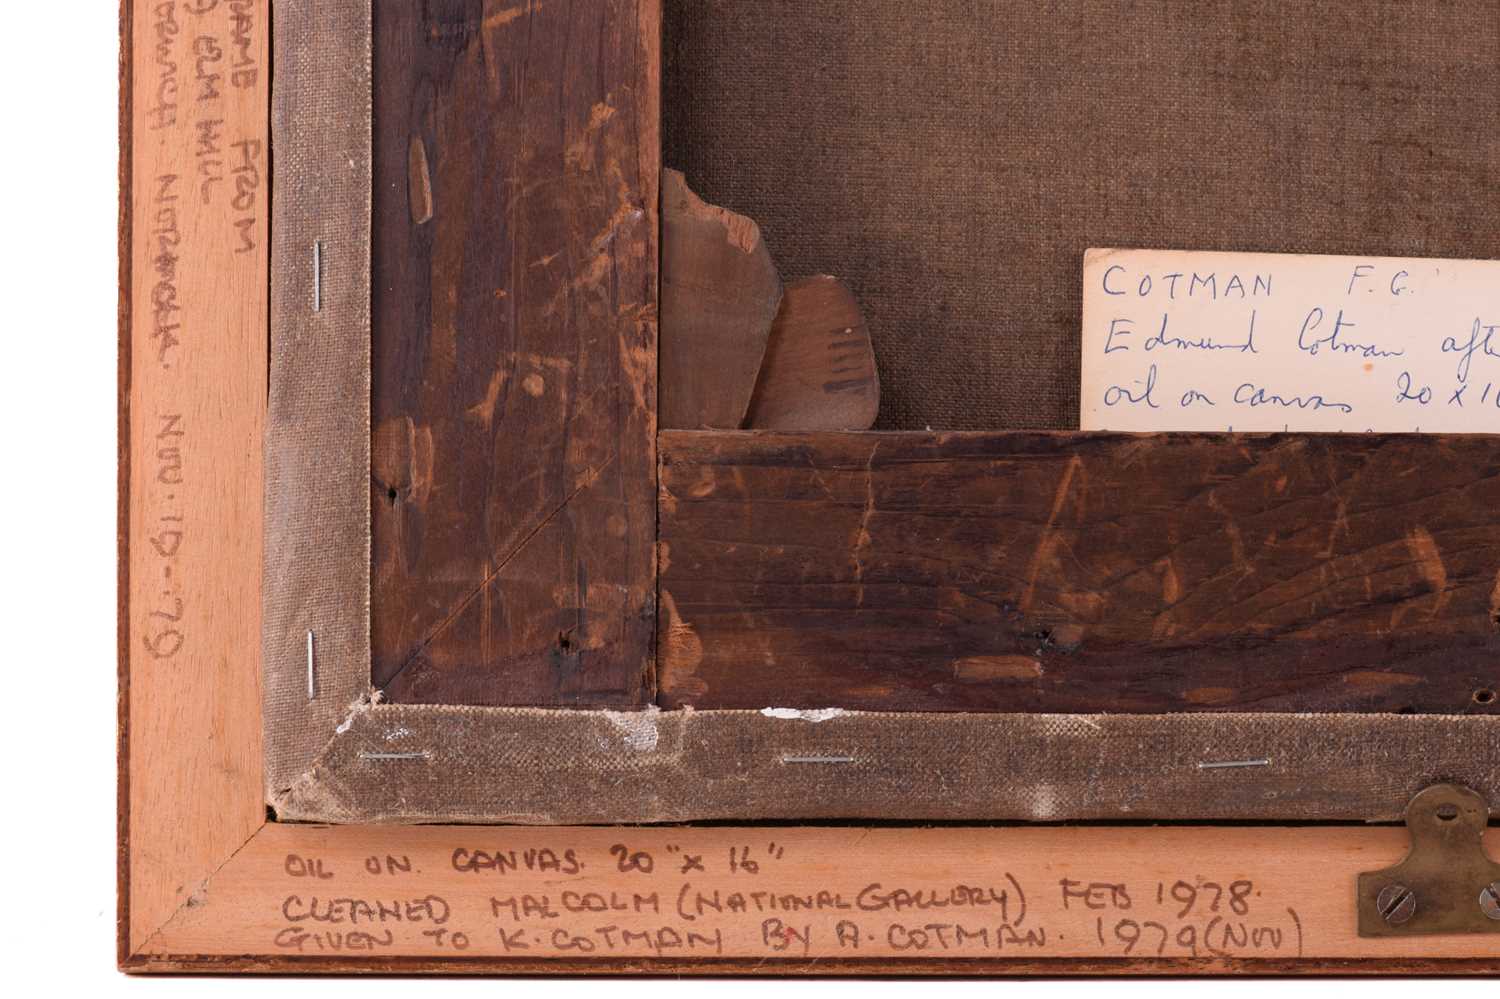 FRAME FROM
ELM HILL
NORWICH. NOV. 19-'79
COTMAN F.G.
Edmund Cotman afte
oil on canvas 20 x 16
OIL ON CANVAS. 20" x 16"
CLEANED MALCOLM (NATIONAL GALLERY) FEB 1978.
GIVEN TO K. COTMAN BY A. COTMAN. 1979 (NOV)